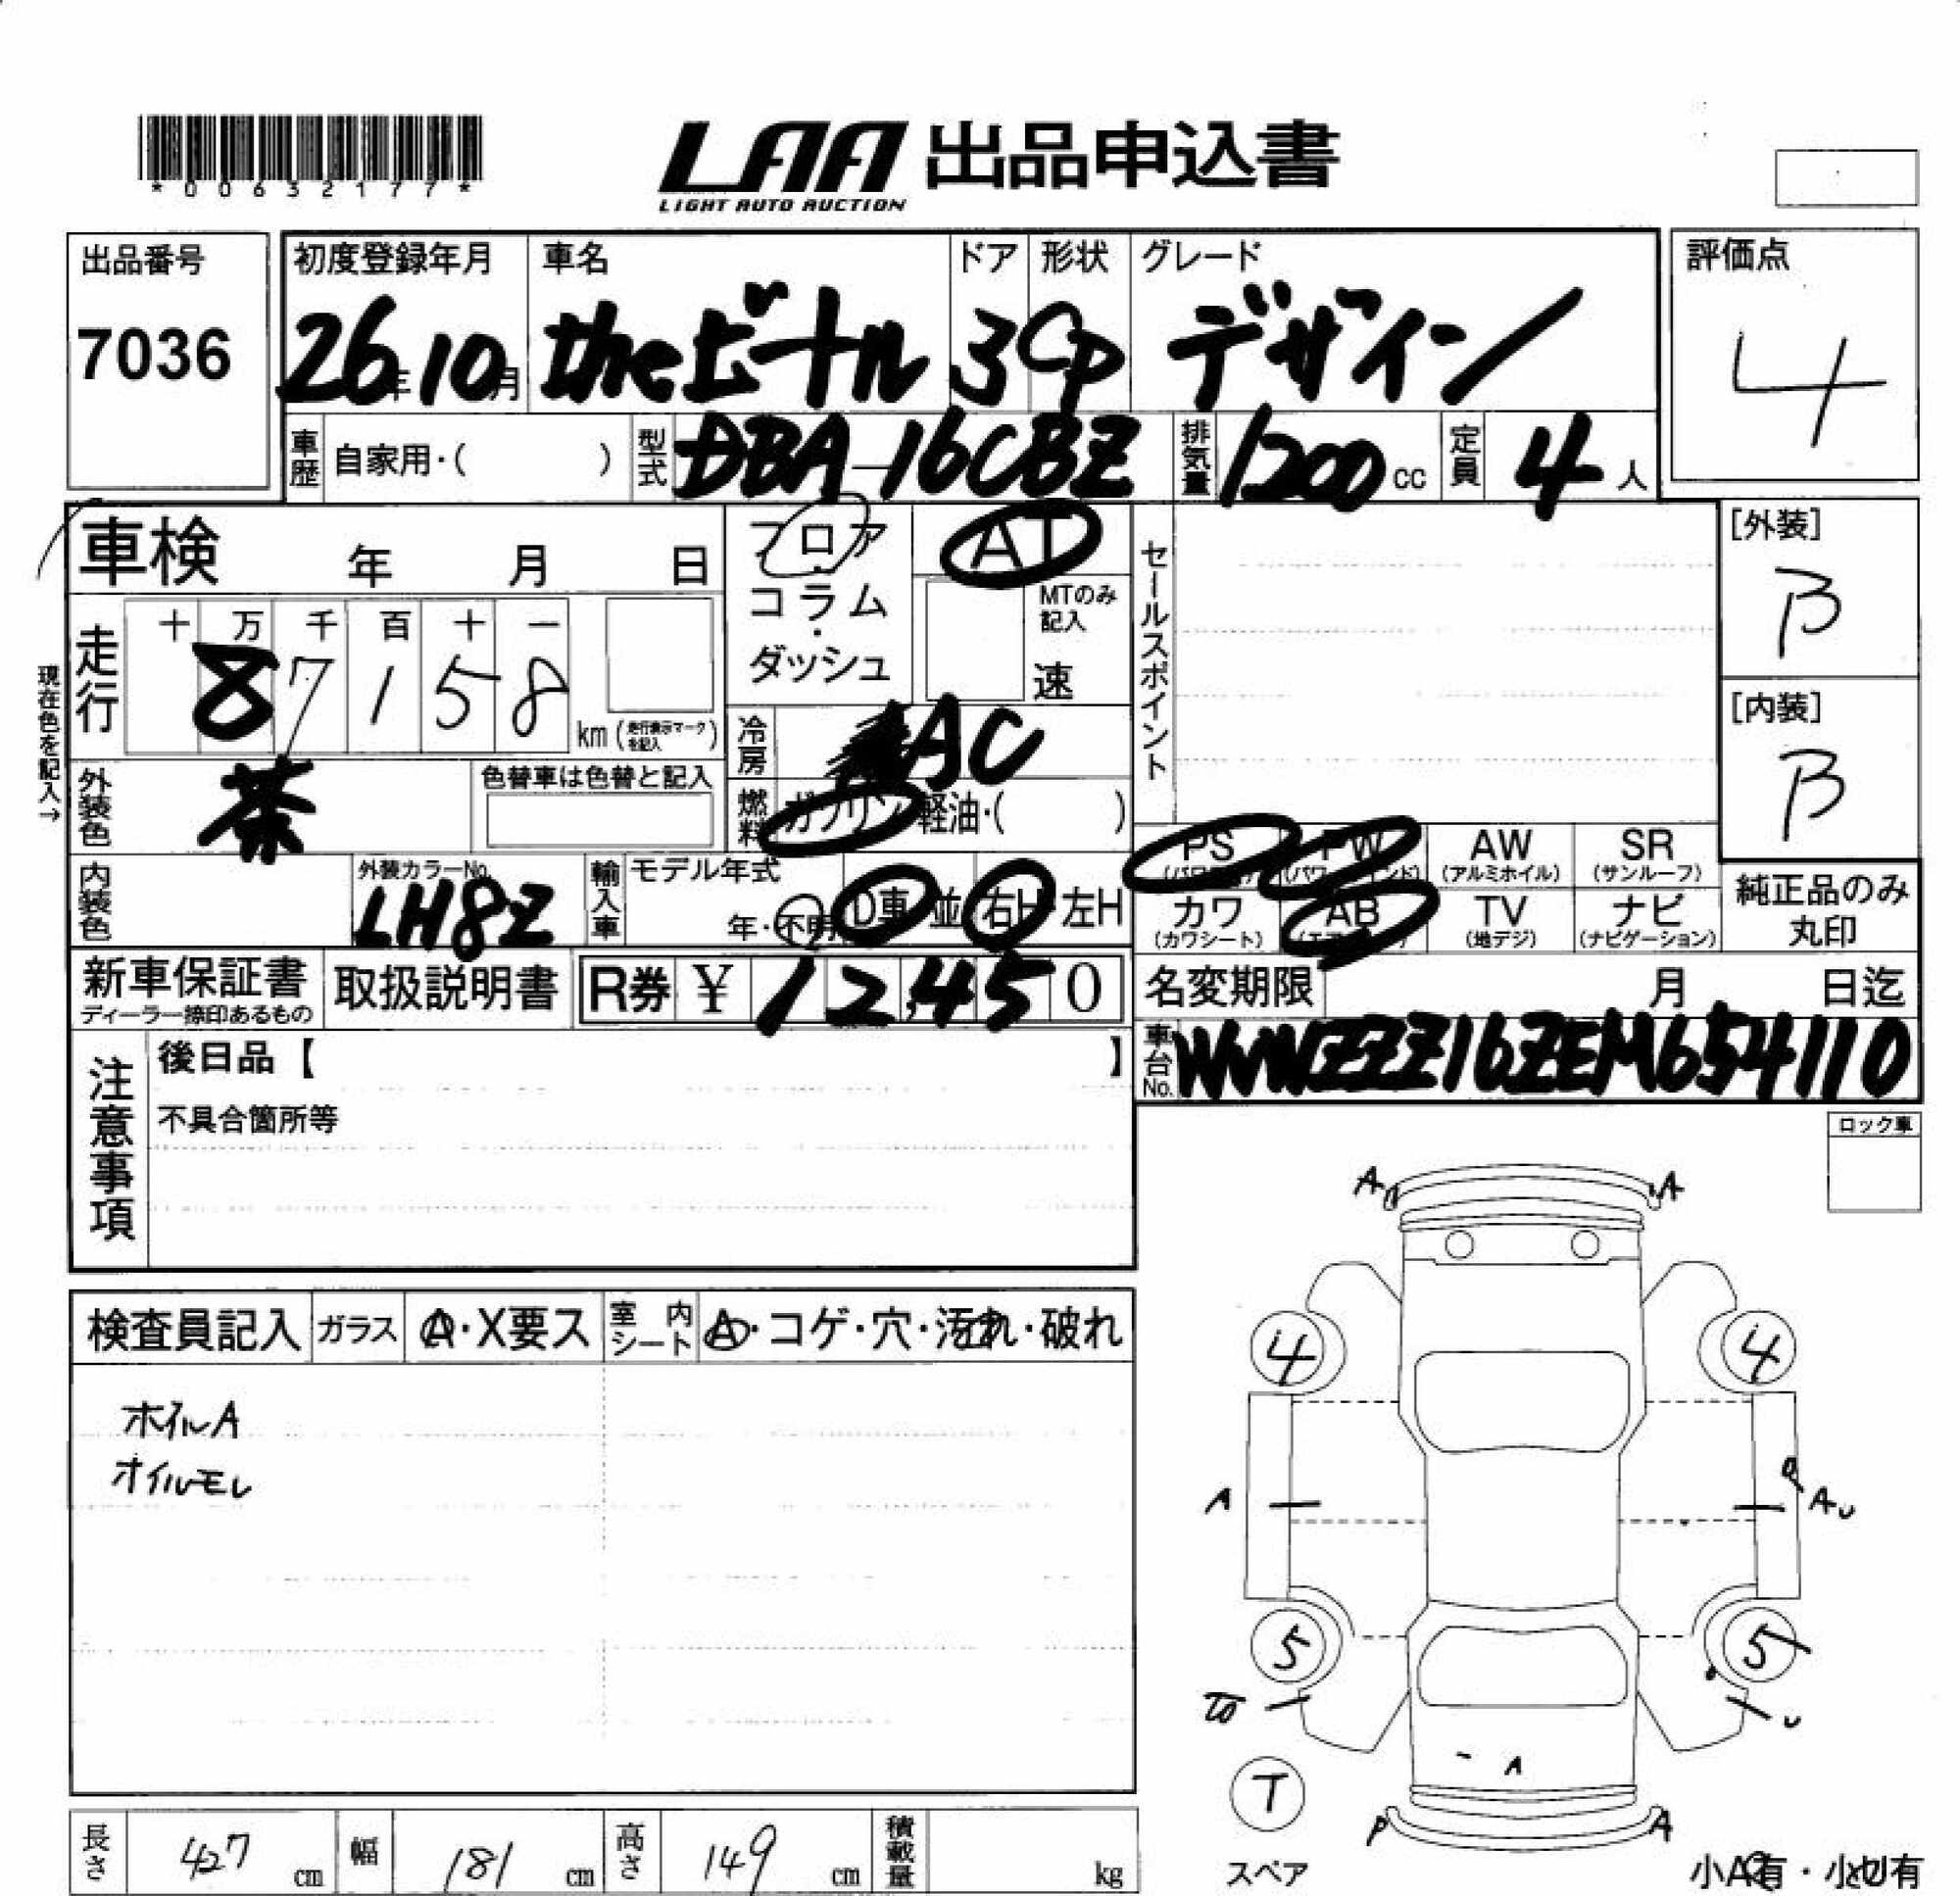 *00632177*
LAA 出品申込書
LIGHT AUTO AUCTION
出品番号
7036
初度登録年月 車名 ドア 形状 グレード
26年10月 theビートル 3 Cp デザイン
評価点
4
車歴 自家用・( ) 型式 DBA-16CBZ 排気量 1200cc 定員 4人
車検 年 月 日
フロア・コラム・ダッシュ
AT
MTのみ記入
速
セールスポイント
[外装]
B
[内装]
B
現在色を記入→
走行 十 万 千 百 十 一
87158 km (走行表示マークを記入)
冷房 AC
外装色 茶 色替車は色替と記入
燃料 ガソリン・軽油・( )
PS PW AW (アルミホイル) SR (サンルーフ)
内装色 外装カラーNo. LH8Z
輸入車 モデル年式 年・不明 D車 並 右H・左H
カワ (カワシート) AB TV (地デジ) ナビ (ナビゲーション)
純正品のみ丸印
新車保証書 ディーラー捺印あるもの
取扱説明書
R券 ¥12,450
名変期限 月 日迄
車台No. WVWZZZ16ZEM654110
注意事項
後日品【 】
不具合箇所等
ロック車
検査員記入 ガラス A・X要ス 室内シート A・コゲ・穴・汚れ・破れ
ホイルA
オイルモレ
A A
4 4
A A U
5 5
U
A
T
P A
スペア
長さ 427 cm 幅 181 cm 高さ 149 cm 積載量 kg
小A有・小U有